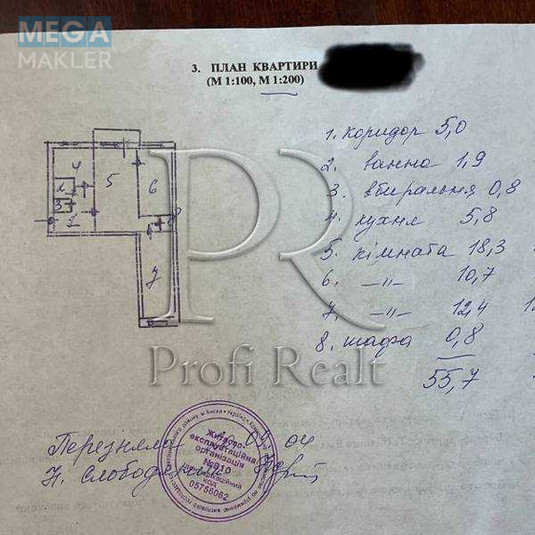 MEGA
MAKLER
3. ПЛАН КВАРТИРИ
(М 1:100, М 1:200)
1. коридор 5,0
2. ванна 1,9
3. вбиральня 0,8
4. кухня 5,8
5. кімната 18,3
6. —"— 10,7
7. —"— 12,4
8. шафа 0,8
55,7
4
5
6
2
3
1
8
7
PR
Profi Realt
Житлово-
експлуатаційна
організація
№910
код
05755062